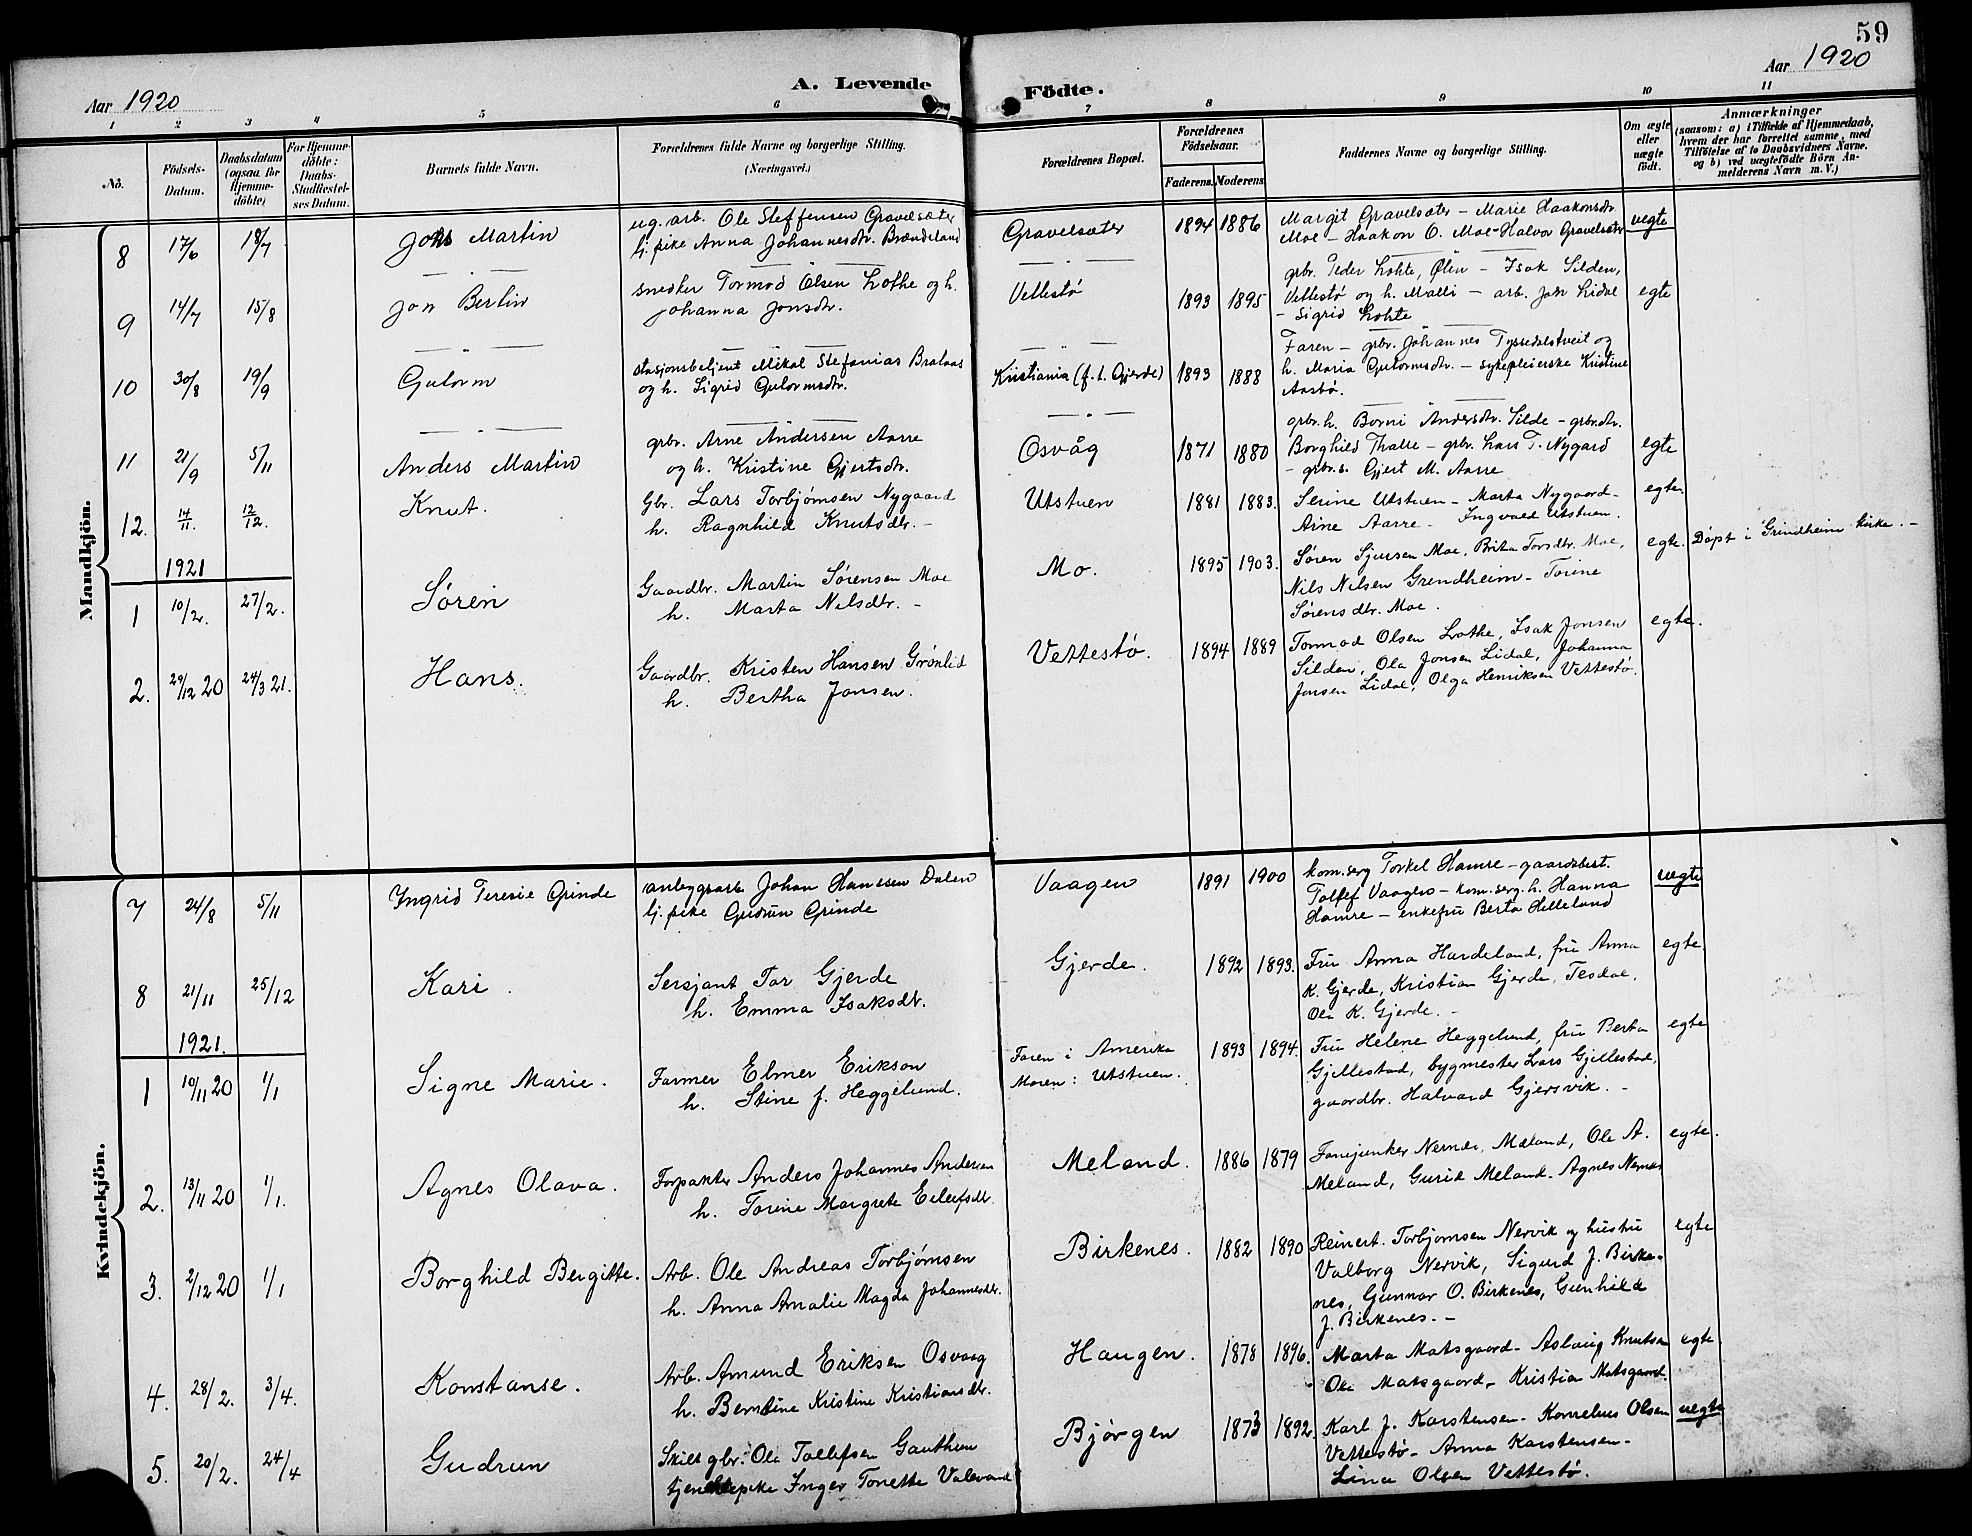 59
Aar 1920
A. Levende Födte.
Aar 1920
1 2 3 4 5 6 7 8 9 10 11
No.
Födsels-Datum.
Daabsdatum (ogsaa for Hjemme-döbte)
For Hjemme-döbte: Daabs-Stadfæstel-ses Datum.
Barnets fulde Navn.
Forældrenes fulde Navne og borgerlige Stilling. (Næringsvei.)
Forældrenes Bopæl.
Forældrenes Födselsaar.
Faderens. Moderens.
Faddernes Navne og borgerlige Stilling.
Om ægte eller uægte födt.
Anmærkninger
(saasom: a) i Tilfælde af Hjemmedaab,
hvem der har forrettet samme, med
Tilföielse af to Daabsvidners Navne,
og b) ved uægtefödte Börn An-
melderens Navn m.V.)
Mandkjön.
8 17/6 18/7 Jon Martin
ug. arb. Ole Steffensen Gravelsæter
tj. pike Anna Johannesdr. Brændeland
Gravelsæter 1894 1886
Margit Gravelsæter – Marie Haakonsdr.
Moe – Haakon O. Moe – Halvor Gravelsæter
uegte
9 14/7 15/8 Jon Bertin
snedker Tormod Olsen Lothe og h.
Johanna Jonsdr.
Vettestø 1893 1895
grbr. Peder Lohte, Ølen – Isak Silden,
Vettestø og h. Malli – arb. Jon Lidal
– Sigrid Lohte
egte
10 30/8 19/9 Gutorm
stasjonsbetjent Mikal Stefanias Brataas
og h. Sigrid Gutormsdr.
Kristiania (f. t. Gjerde) 1893 1888
Faren – grbr. Johannes Tyssedalstveit og
h. Maria Gutormsdr. – sykepleierske Kristine
Aastø.
11 21/9 5/11 Anders Martin
grbr. Arne Andersen Aarre
og h. Kristine Gjertsdr.
Osvåg 1871 1880
grbr. h. Borni Andersdr. Silde – grbr.dr.
Borghild Thalle – grbr. Lars T. Nygard
– grbr.s. Gjert M. Aarre
egte
12. 14/11. 12/12. Knut.
Gbr. Lars Torbjørnsen Nygaard
h. Ragnhild Knutsdtr. –
Utstuen 1881 1883.
Serine Utstuen – Marta Nygaard –
Arne Aarre – Ingvald Utstuen.
egte.
1921
1 10/2. 27/2. Søren
Gaardbr. Martin Sørensen Moe
h. Marta Nilsdtr. –
Mo. 1895 1903.
Søren Sjursen Moe, Brita Torsdtr. Moe,
Nils Nilsen Grendheim – Torine
Sørensdtr. Moe.
egte. Døpt i Grindheim kirke. –
2. 29/12 20 24/3 21. Hans.
Gaardbr. Kristen Hansen Grønlid
h. Bertha Jonsen.
Vettestø. 1894 1889
Tormod Olsen Lothe, Isak Jonsen
Silden, Ola Jonsen Lidal, Johanna
Jonsen Lidal, Olga Henriksen Vettestø.
egte.
Kvindekjön.
7 24/8 5/11 Ingrid Teresie Grinde
anlegsarb. Johan Hanssen Dalen
tj. pike Gudrun Grinde
Vaagen 1891 1900
kom.serg Torkel Hamre – gaardsbest.
Tollef Vaagen – kom. serg. h. Hanna
Hamre – enkefru Berta Helleland
uegte
8 21/11 25/12 Kari.
Sersjant Tor Gjerde
h. Emma Isaksdtr.
Gjerde. 1892 1893.
Fru Anna Hardeland, fru Anna
K. Gjerde, Kristian Gjerde, Tesdal,
Ola K. Gjerde. –
egte
1921.
1 10/11 20 1/1 Signe Marie.
Farmer Elmer Erikson
h. Stine f. Heggelund.
Faren i Amerika
Moren: Utstuen.
1893 1894.
Fru Helene Heggelund, fru Berta
Gjellestad, bygmester Lars Gjellestad,
gaardbr. Halvard Gjersvik. –
egte
2. 13/11 20 1/1. Agnes Olava.
Forpakter Anders Johannes Andersen
h. Torine Margrete Eilefsdtr.
Meland. 1886 1879
Fanejunker Nernes, Mæland, Ole A.
Meland, Gurid Meland. Agnes Nernes
egte.
3. 2/12 20 1/1 Borghild Bergitte.
Arb. Ole Andreas Torbjørnsen
h. Anna Amalie Magda Johannesdtr.
Birkenes. 1882 1890
Reinert Torbjørnsen Nervik og hustru
Valborg Nervik, Sigurd J. Birke-
nes, Gunnar O. Birkenes, Gunhild
J. Birkenes. –
egte
4. 28/2. 3/4. Konstanse.
Arb. Amund Eriksen Osvaag
h. Berntine Kristine Kristiansdtr.
Haugen. 1878 1896.
Marta Matsgaard – Aslaug Knutsen
Ole Matsgaard – Kristian Matsgaard.
egte
5. 20/2. 24/4 Gudrun
Skilt gbr. Ole Tollefsen Gauthun
tjenestepike Inger Tonette Valevand
Bjørgen 1873 1892.
Karl J. Karstensen – Kornelius Olsen
Vettestø – Anna Karstensen –
Lina Olsen Vettestø.
uegte